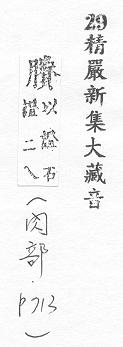 29精嚴新集大藏音
以證
二
(肉部.p713)